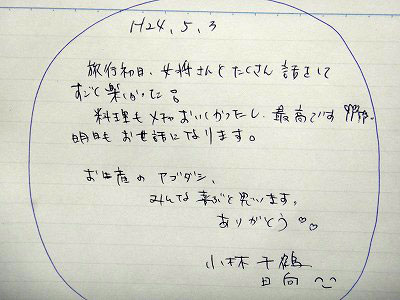 H24.5.3
旅行初日、女将さんとたくさん話をして
すごく楽しかった。
料理もメッチャおいしかったし、最高です
明日もお世話になります。
お土産のアゴダシ、
みんな喜ぶと思います。
ありがとう♡♡
小林千鶴
日向